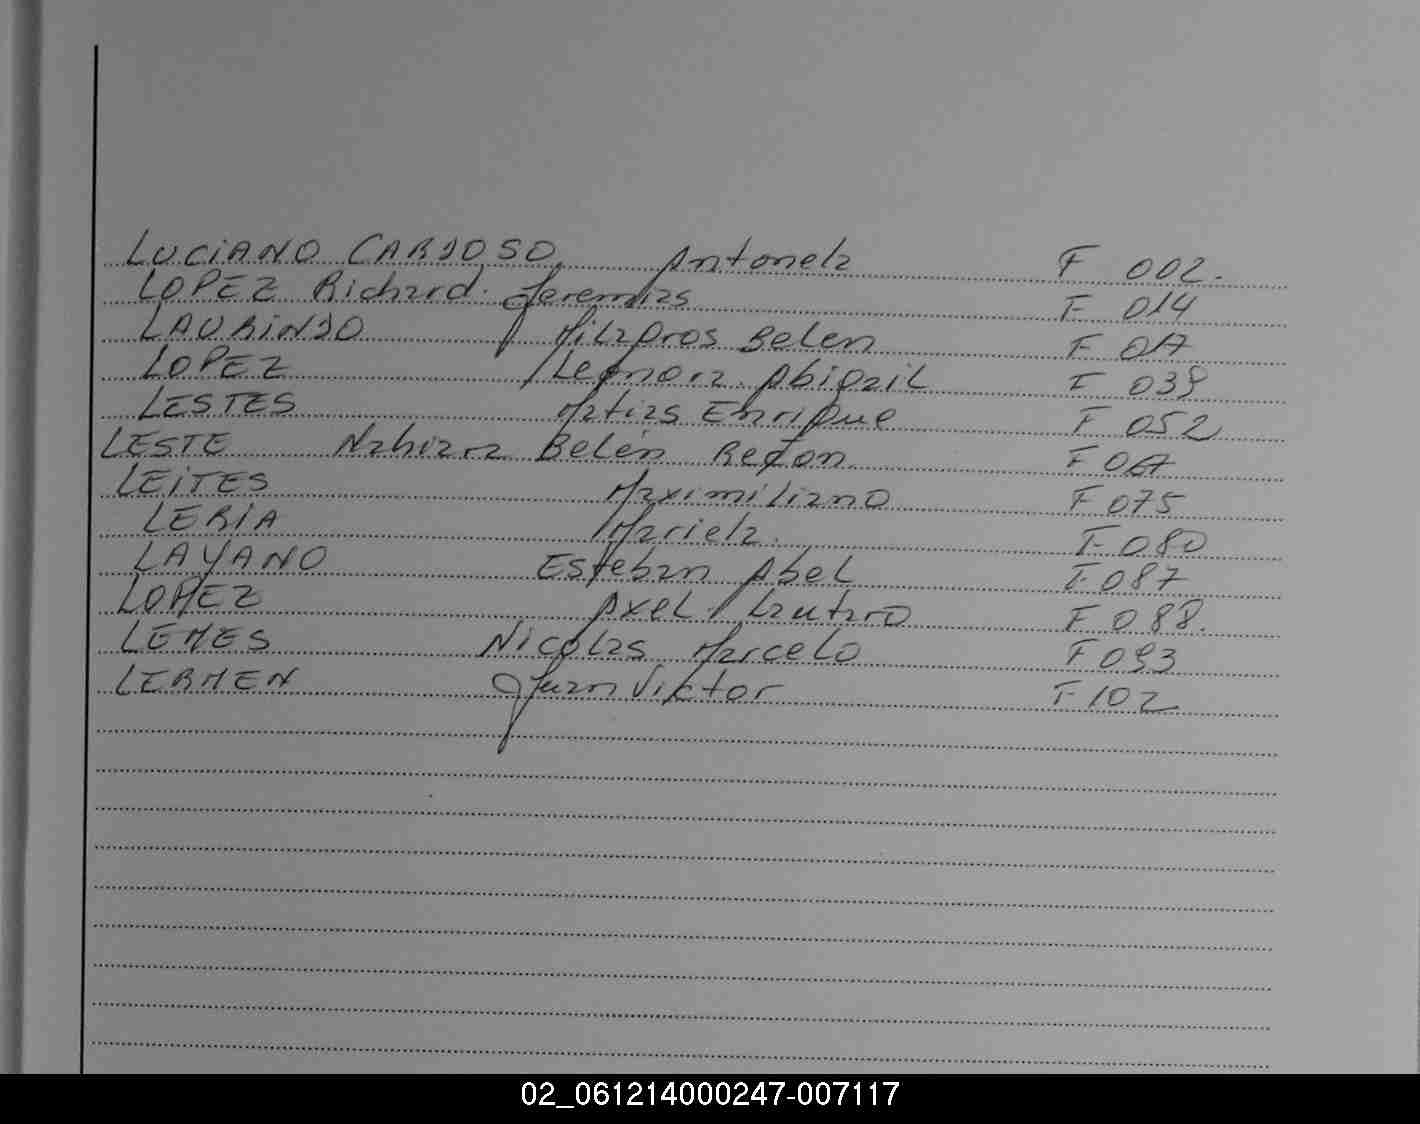 LUCiANO CARDOSO. Antonela F 002.
LOPEZ Richard. Jeremias F 014
LAURiNDO Milagros Belen F 017
LOPEZ Leonora. Abigail F 039
LESTES Matias Enrique F 052
LESTE Nahiara Belén Regon. F 067
LEiTES Maximiliano F 075
LERIA Mariela. F 080
LAYANO Esteban Abel F 087
LOPEZ Axel Lautaro F 088.
LEMES Nicolas Marcelo F 093
LERMEN Juan Viktor F 102
02_061214000247-007117